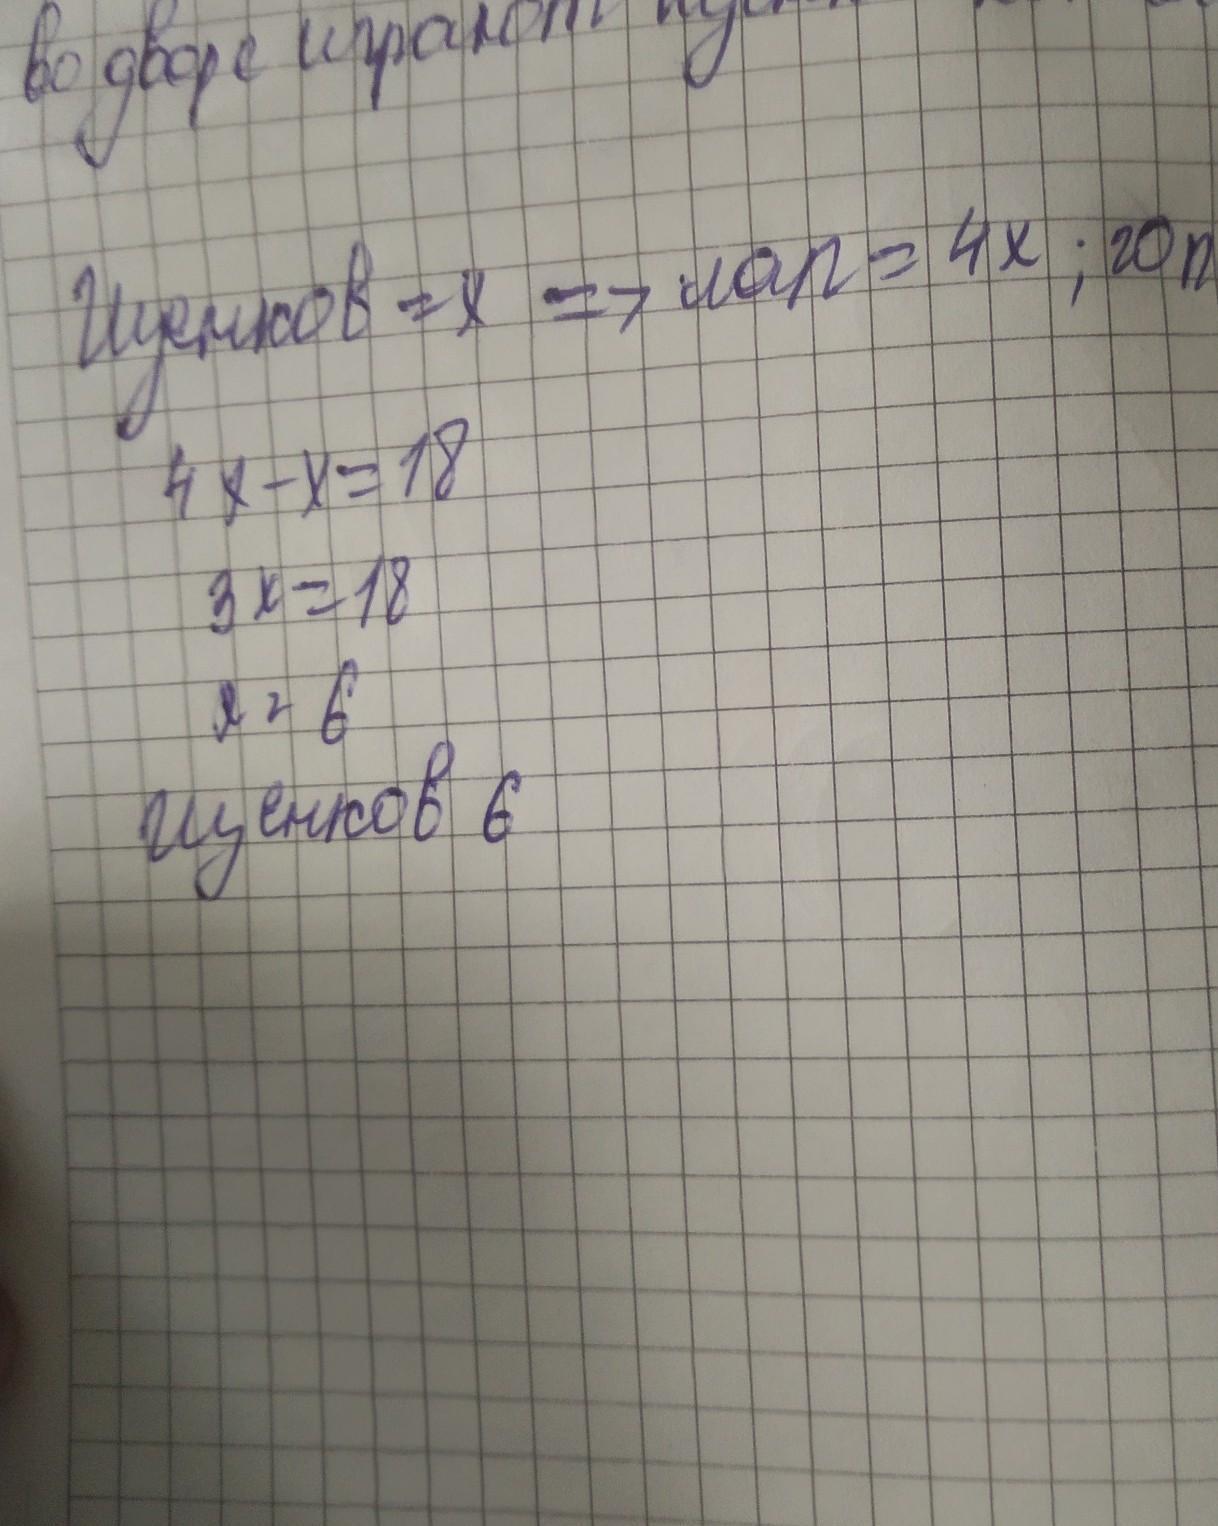 во дворе играют
Щенков = x => лап = 4x ; гол
4x - x = 18
3x = 18
x = 6
щенков 6